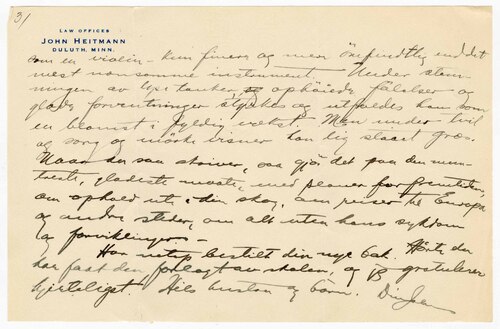 3)
LAW OFFICES
JOHN HEITMANN
DULUTH, MINN.
som en violin – kun finere og mere ömfindtlig end det
mest nansomme instrument. Under stem-
ningen av lyse tanker, ophöiede fölelser og
glade forventninger styrkes og utfoldes han som
en blomst i fyldig vekst. Men under tvil
og sorg og mörke visner han lig slaaet græs.
Naar du saa skriver, saa gjör det paa den mun-
treste, gladeste maate, med planer for fremtiden,
om ophold ute i din skog, om reiser til Europa
og andre steder, om alt uten hans sykdom
og forviklinger –
Har netop bestilt din nye bok. Hörte du
har faat den forlagt av skolen, og jeg gratulerer
hjerteligst. Hils hustru og barn. Din